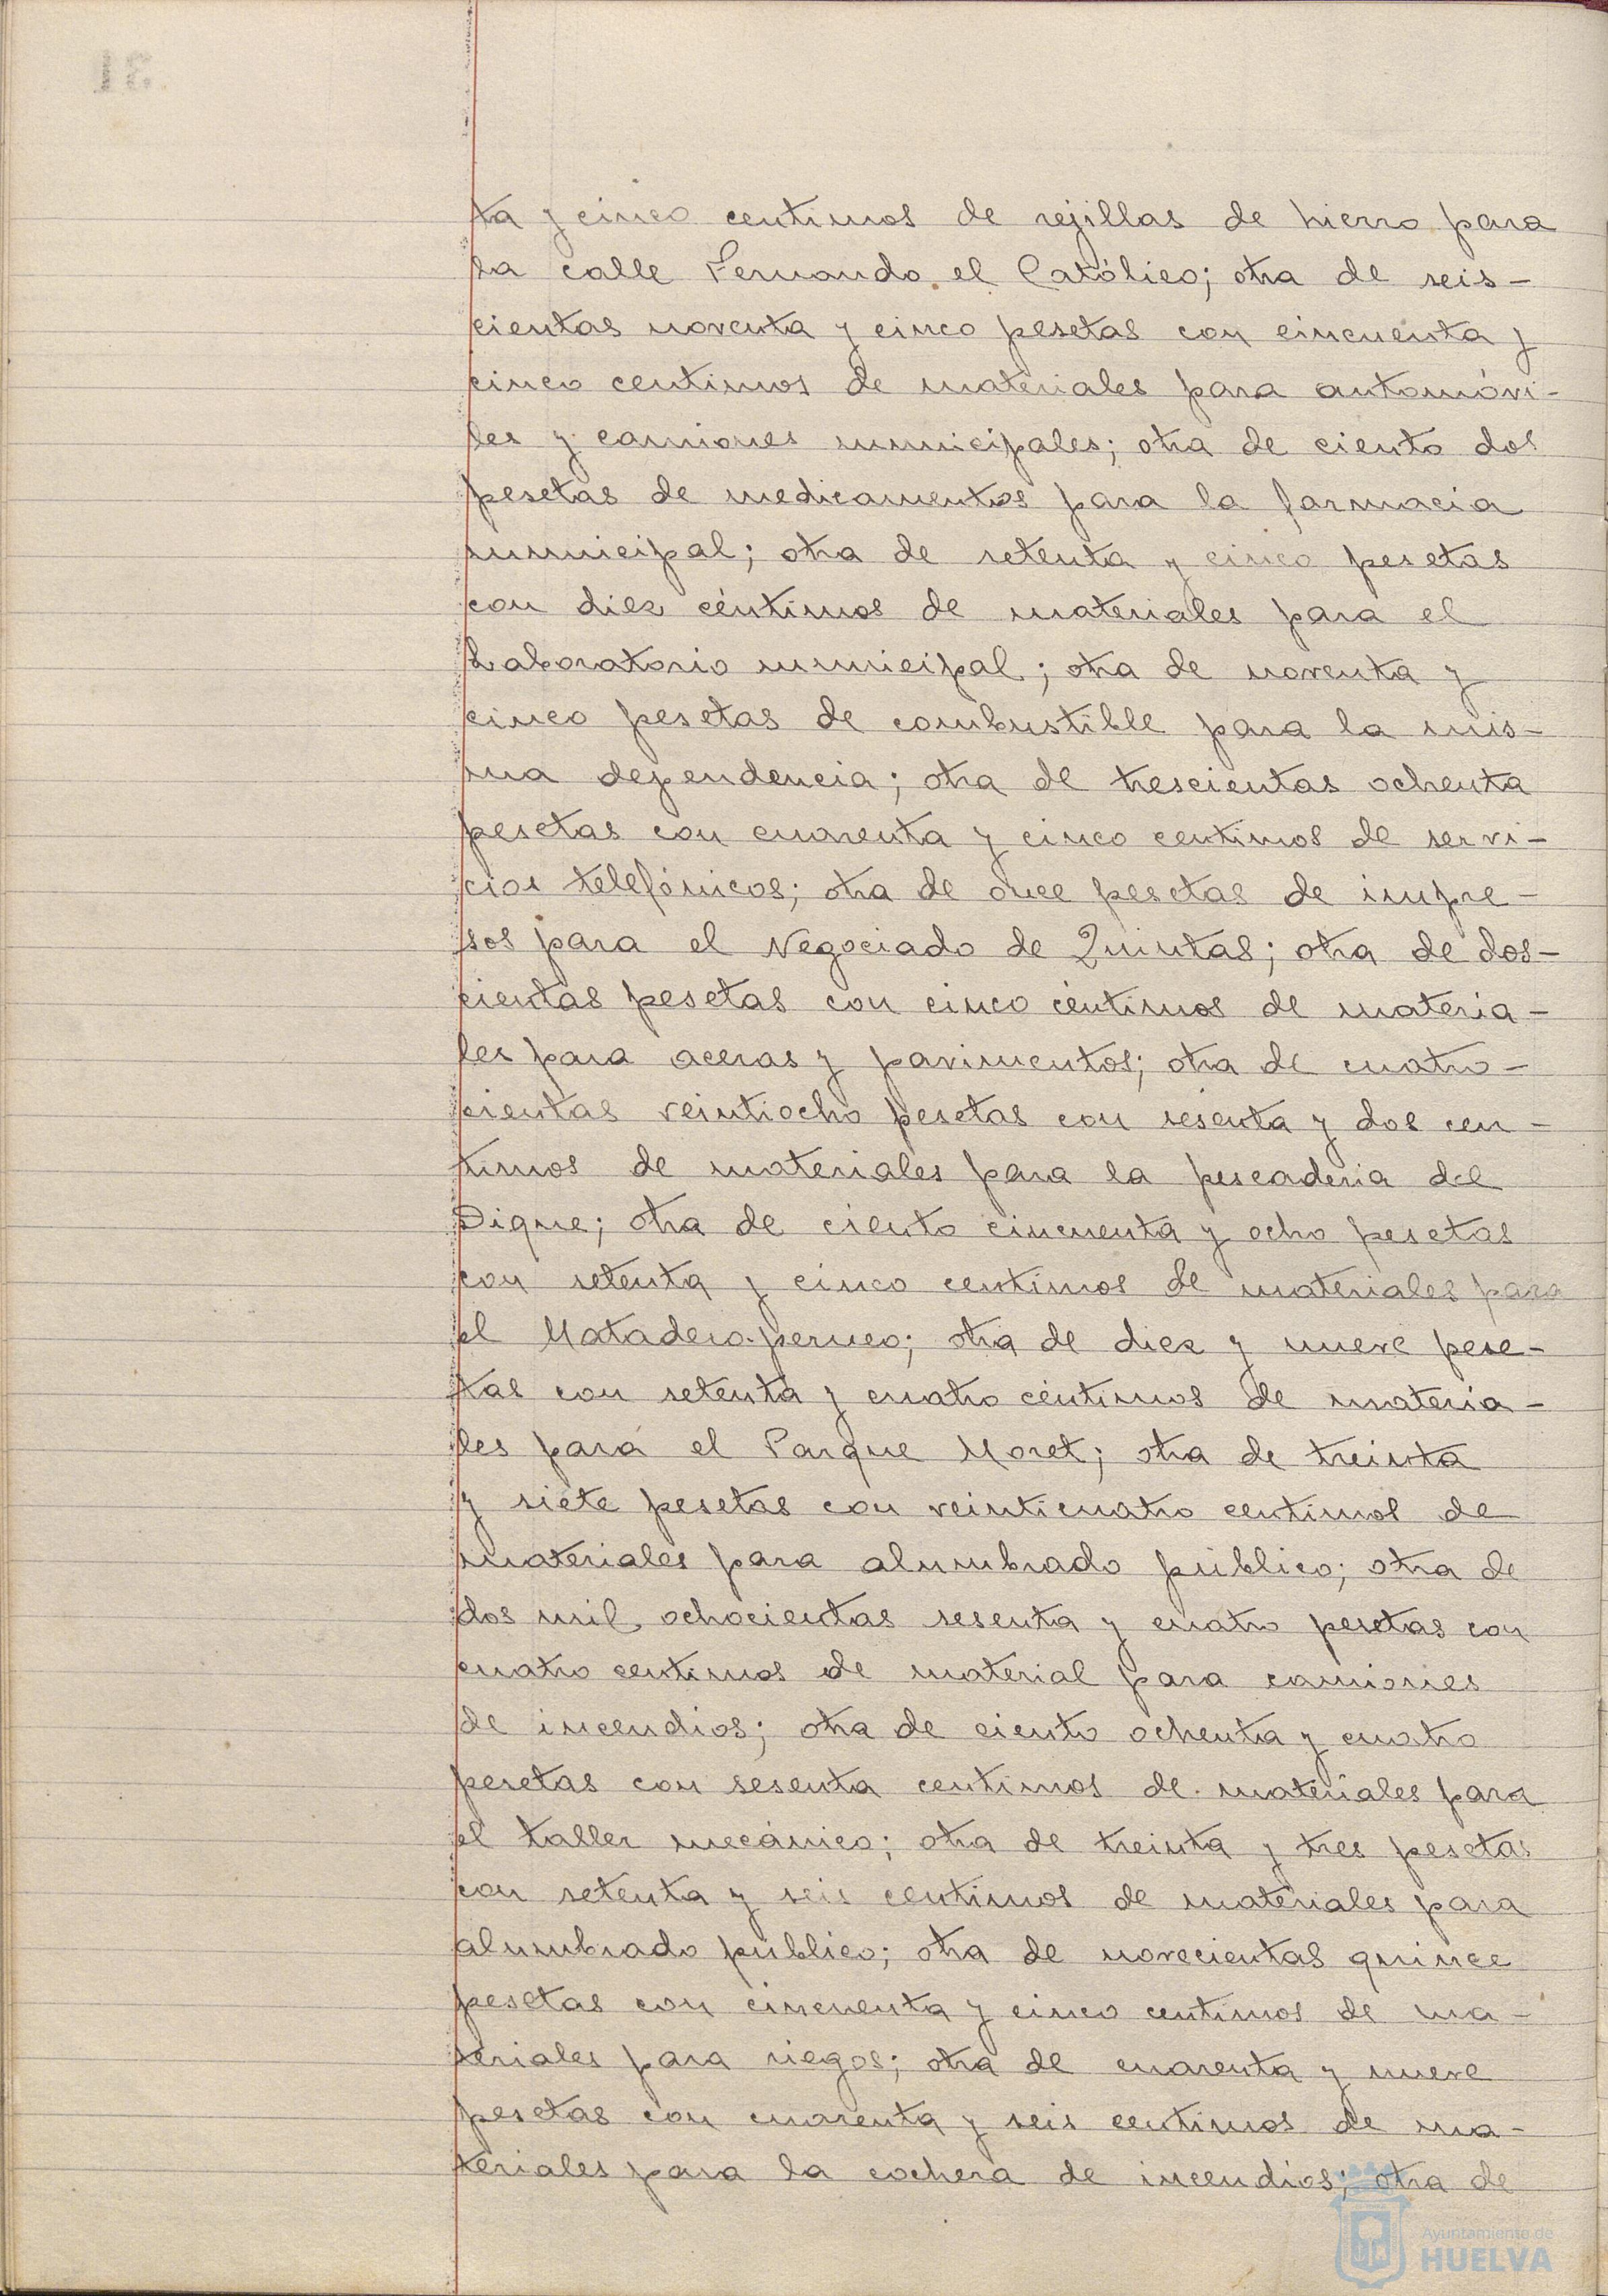 ta y cinco centimos de rejillas de hierro para
la calle Fernando el Católico; otra de seis-
cientas noventa y cinco pesetas con cincuenta y
cinco centimos de materiales para automóvi-
les y camiones municipales; otra de ciento dos
pesetas de medicamentos para la farmacia
municipal; otra de setenta y cinco pesetas
con diez céntimos de materiales para el
Laboratorio municipal; otra de noventa y
cinco pesetas de combustible para la mis-
ma dependencia; otra de trescientas ochenta
pesetas con cuarenta y cinco centimos de servi-
cios telefónicos; otra de once pesetas de impre-
sos para el Negociado de Quintas; otra de dos-
cientas pesetas con cinco céntimos de materia-
les para aceras y pavimentos; otra de cuatro-
cientas veintiocho pesetas con sesenta y dos cen-
timos de materiales para la pescaderia del
Dique; otra de ciento cincuenta y ocho pesetas
con setenta y cinco centimos de materiales para
el Matadero perneo; otra de diez y nueve pese-
tas con setenta y cuatro céntimos de materia-
les para el Parque Moret; otra de treinta
y siete pesetas con veinticuatro centimos de
materiales para alumbrado público; otra de
dos mil ochocientas sesenta y cuatro pesetas con
cuatro centimos de material para camiones
de incendios; otra de ciento ochenta y cuatro
pesetas con sesenta centimos de materiales para
el taller mecánico; otra de treinta y tres pesetas
con setenta y seis centimos de materiales para
alumbrado publico; otra de novecientas quince
pesetas con cincuenta y cinco centimos de ma-
teriales para riegos; otra de cuarenta y nueve
pesetas con cuarenta y seis centimos de ma-
teriales para la cochera de incendios; otra de
Ayuntamiento de
HUELVA